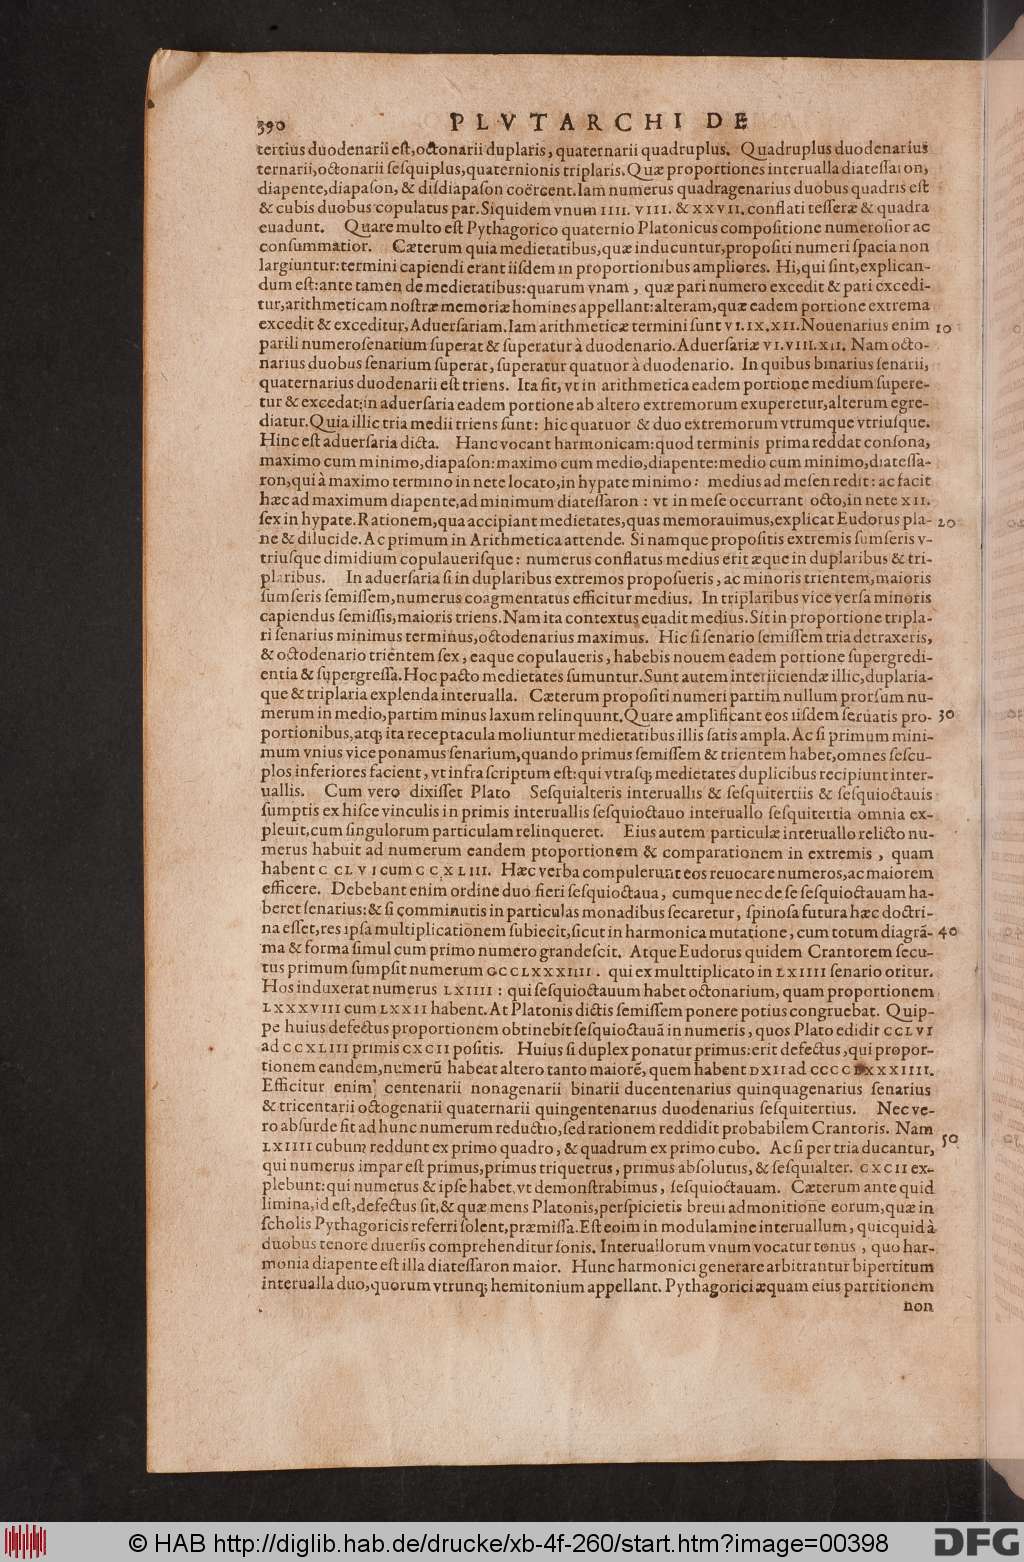 390 PLVTARCHI DE
tertius duodenarii eſt, octonarii duplaris, quaternarii quadruplus. Quadruplus duodenarius
ternarii, octonarii ſeſquiplus, quaternionis triplaris. Quæ proportiones interualla diateſſaron,
diapente, diapaſon, & diſdiapaſon coërcent. Iam numerus quadragenarius duobus quadris eſt
& cubis duobus copulatus par. Siquidem vnum IIII. VIII. & XXVII. conflati teſſeræ & quadra
euadunt. Quare multo eſt Pythagorico quaternio Platonicus compoſitione numeroſior ac
conſummatior. Cæterum quia medietatibus, quæ inducuntur, propoſiti numeri ſpacia non
largiuntur: termini capiendi erant iiſdem in proportionibus ampliores. Hi, qui ſint, explican-
dum eſt: ante tamen de medietatibus: quarum vnam, quæ pari numero excedit & pari excedi-
tur, arithmeticam noſtræ memoriæ homines appellant: alteram, quæ eadem portione extrema
excedit & exceditur, Aduerſariam. Iam arithmeticæ termini ſunt VI. IX. XII. Nouenarius enim 10
parili numero ſenarium ſuperat & ſuperatur à duodenario. Aduerſariæ VI. VIII. XII. Nam octo-
narius duobus ſenarium ſuperat, ſuperatur quatuor à duodenario. In quibus binarius ſenarii,
quaternarius duodenarii eſt triens. Ita fit, vt in arithmetica eadem portione medium ſupere-
tur & excedat: in aduerſaria eadem portione ab altero extremorum exuperetur, alterum egre-
diatur. Quia illic tria medii triens ſunt: hic quatuor & duo extremorum vtrumque vtriuſque.
Hinc eſt aduerſaria dicta. Hanc vocant harmonicam: quod terminis prima reddat conſona,
maximo cum minimo, diapaſon: maximo cum medio, diapente: medio cum minimo, diateſſa-
ron, qui à maximo termino in nete locato, in hypate minimo: medius ad meſen redit: ac facit
hæc ad maximum diapente, ad minimum diateſſaron: vt in meſe occurrant octo, in nete XII.
ſex in hypate. Rationem, qua accipiant medietates, quas memorauimus, explicat Eudorus pla- 20
ne & dilucide. Ac primum in Arithmetica attende. Si namque propoſitis extremis ſumſeris v-
triuſque dimidium copulaueriſque: numerus conflatus medius erit æque in duplaribus & tri-
plaribus. In aduerſaria ſi in duplaribus extremos propoſueris, ac minoris trientem, maioris
ſumſeris ſemiſſem, numerus coagmentatus efficitur medius. In triplaribus vice verſa minoris
capiendus ſemiſſis, maioris triens. Nam ita contextus euadit medius. Sit in proportione tripla-
ri ſenarius minimus terminus, octodenarius maximus. Hic ſi ſenario ſemiſſem tria detraxeris,
& octodenario trientem ſex, eaque copulaueris, habebis nouem eadem portione ſupergredi-
entia & ſupergreſſa. Hoc pacto medietates ſumuntur. Sunt autem interiiciendæ illic, duplaria-
que & triplaria explenda interualla. Cæterum propoſiti numeri partim nullum prorſum nu-
merum in medio, partim minus laxum relinquunt. Quare amplificant eos iiſdem ſeruatis pro- 30
portionibus, atq; ita receptacula moliuntur medietatibus illis ſatis ampla. Ac ſi primum mini-
mum vnius vice ponamus ſenarium, quando primus ſemiſſem & trientem habet, omnes ſeſcu-
plos inferiores facient, vt infra ſcriptum eſt: qui vtraſq; medietates duplicibus recipiunt inter-
uallis. Cum vero dixiſſet Plato Seſquialteris interuallis & ſeſquitertiis & ſeſquioctauis
ſumptis ex hiſce vinculis in primis interuallis ſeſquioctauo interuallo ſeſquitertia omnia ex-
pleuit, cum ſingulorum particulam relinqueret. Eius autem particulæ interuallo relicto nu-
merus habuit ad numerum eandem proportionem & comparationem in extremis, quam
habent CCLVI cum CCXLIII. Hæc verba compulerunt eos reuocare numeros, ac maiorem
efficere. Debebant enim ordine duo fieri ſeſquioctaua, cumque nec de ſe ſeſquioctauam ha-
beret ſenarius: & ſi comminutis in particulas monadibus ſecaretur, ſpinoſa futura hæc doctri-
na eſſet, res ipſa multiplicationem ſubiecit, ſicut in harmonica mutatione, cum totum diagrā- 40
ma & forma ſimul cum primo numero grandeſcit. Atque Eudorus quidem Crantorem ſecu-
tus primum ſumpſit numerum CCCLXXXIIII. qui ex multtiplicato in LXIIII ſenario oritur.
Hos induxerat numerus LXIIII: qui ſeſquioctauum habet octonarium, quam proportionem
LXXXVIII cum LXXII habent. At Platonis dictis ſemiſſem ponere potius congruebat. Quip-
pe huius defectus proportionem obtinebit ſeſquioctauā in numeris, quos Plato edidit CCLVI
ad CCXLIII primis CXCII poſitis. Huius ſi duplex ponatur primus: erit defectus, qui propor-
tionem eandem, numerū habeat altero tanto maiorē, quem habent DXII ad CCCCLXXXIIII.
Efficitur enim centenarii nonagenarii binarii ducentenarius quinquagenarius ſenarius
& tricentarii octogenarii quaternarii quingentenarius duodenarius ſeſquitertius. Nec ve-
ro abſurde fit ad hunc numerum reductio, ſed rationem reddidit probabilem Crantoris. Nam
LXIIII cubum reddunt ex primo quadro, & quadrum ex primo cubo. Ac ſi per tria ducantur, 50
qui numerus impar eſt primus, primus triquetrus, primus abſolutus, & ſeſquialter. CXCII ex-
plebunt: qui numerus & ipſe habet, vt demonſtrabimus, ſeſquioctauam. Cæterum ante quid
limina, id eſt, defectus ſit, & quæ mens Platonis, perſpicietis breui admonitione eorum, quæ in
ſcholis Pythagoricis referri ſolent, præmiſſa. Eſt eoim in modulamine interuallum, quicquid à
duobus tenore diuerſis comprehenditur ſonis. Interuallorum vnum vocatur tonus, quo har-
monia diapente eſt illa diateſſaron maior. Hunc harmonici generare arbitrantur bipertitum
interualla duo, quorum vtrunq; hemitonium appellant. Pythagorici æquam eius partitionem
non
© HAB http://diglib.hab.de/drucke/xb-4f-260/start.htm?image=00398
DFG